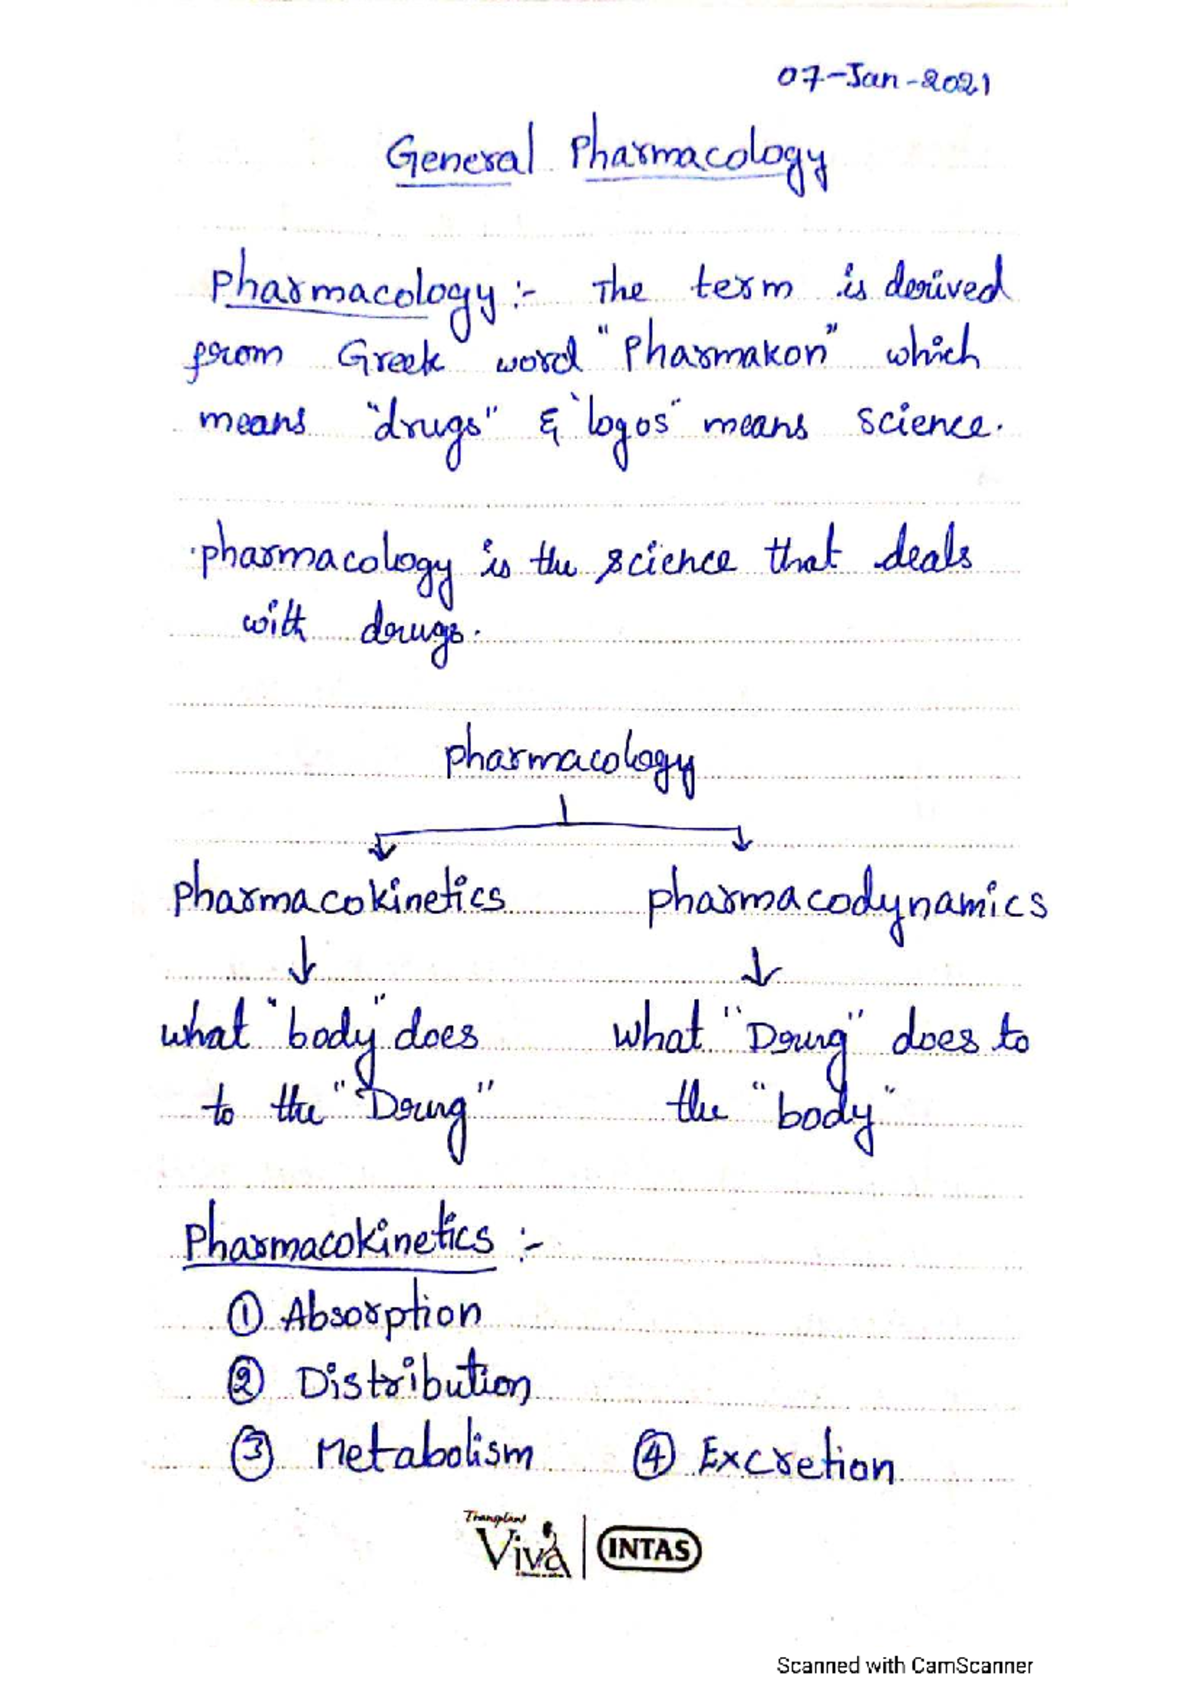 07-Jan-2021
General Pharmacology
Pharmacology :- The term is derived
from Greek word "Pharmakon" which
means "drugs" & "logos" means science.
pharmacology is the science that deals
with drugs.
pharmacology
pharmacokinetics pharmacodynamics
what "body" does what "Drug" does to
to the "Drug" the "body"
Pharmacokinetics :-
① Absorption
② Distribution
③ Metabolism ④ Excretion
Transplant
Viva INTAS
Scanned with CamScanner